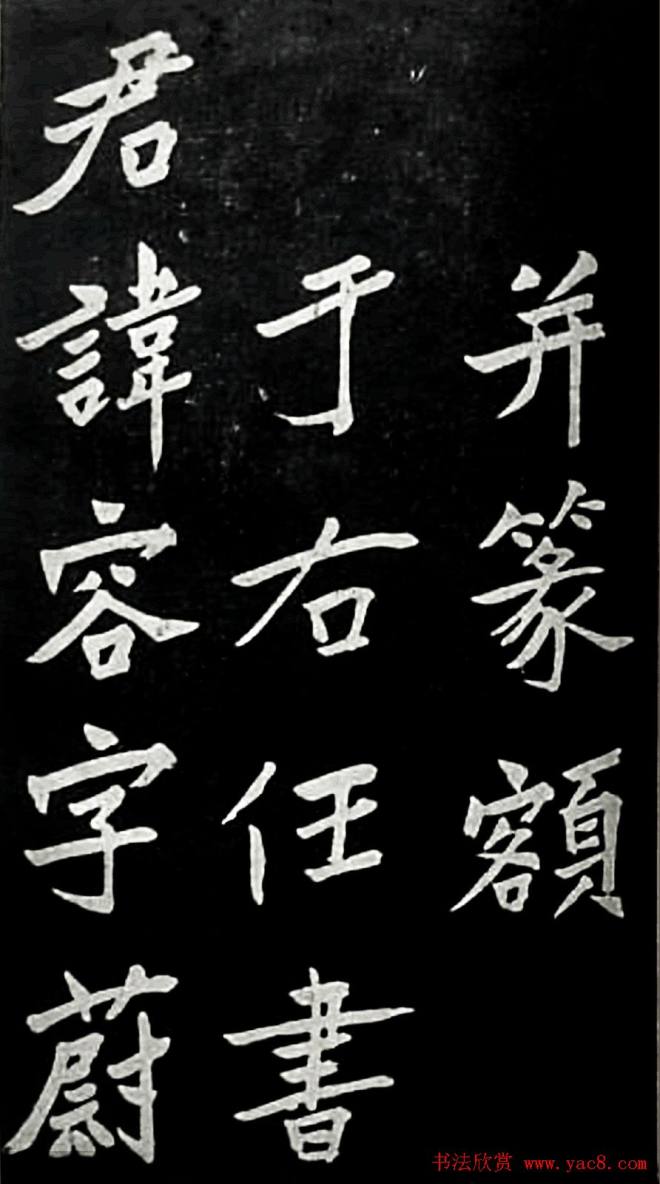 并篆額
于右任書
君諱容字蔚
书法欣赏 www.yac8.com